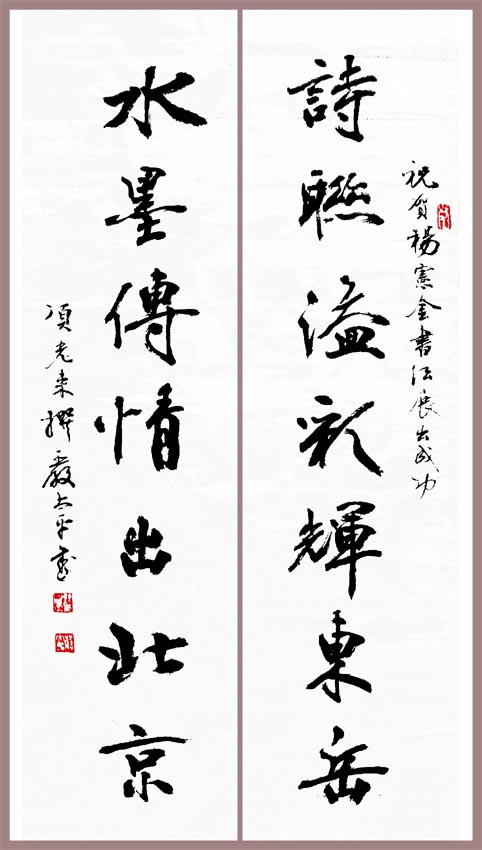 祝賀楊憲金書法展出成功
詩聯溢彩輝東岳
水墨傳情出北京
項光來撰嚴太平書